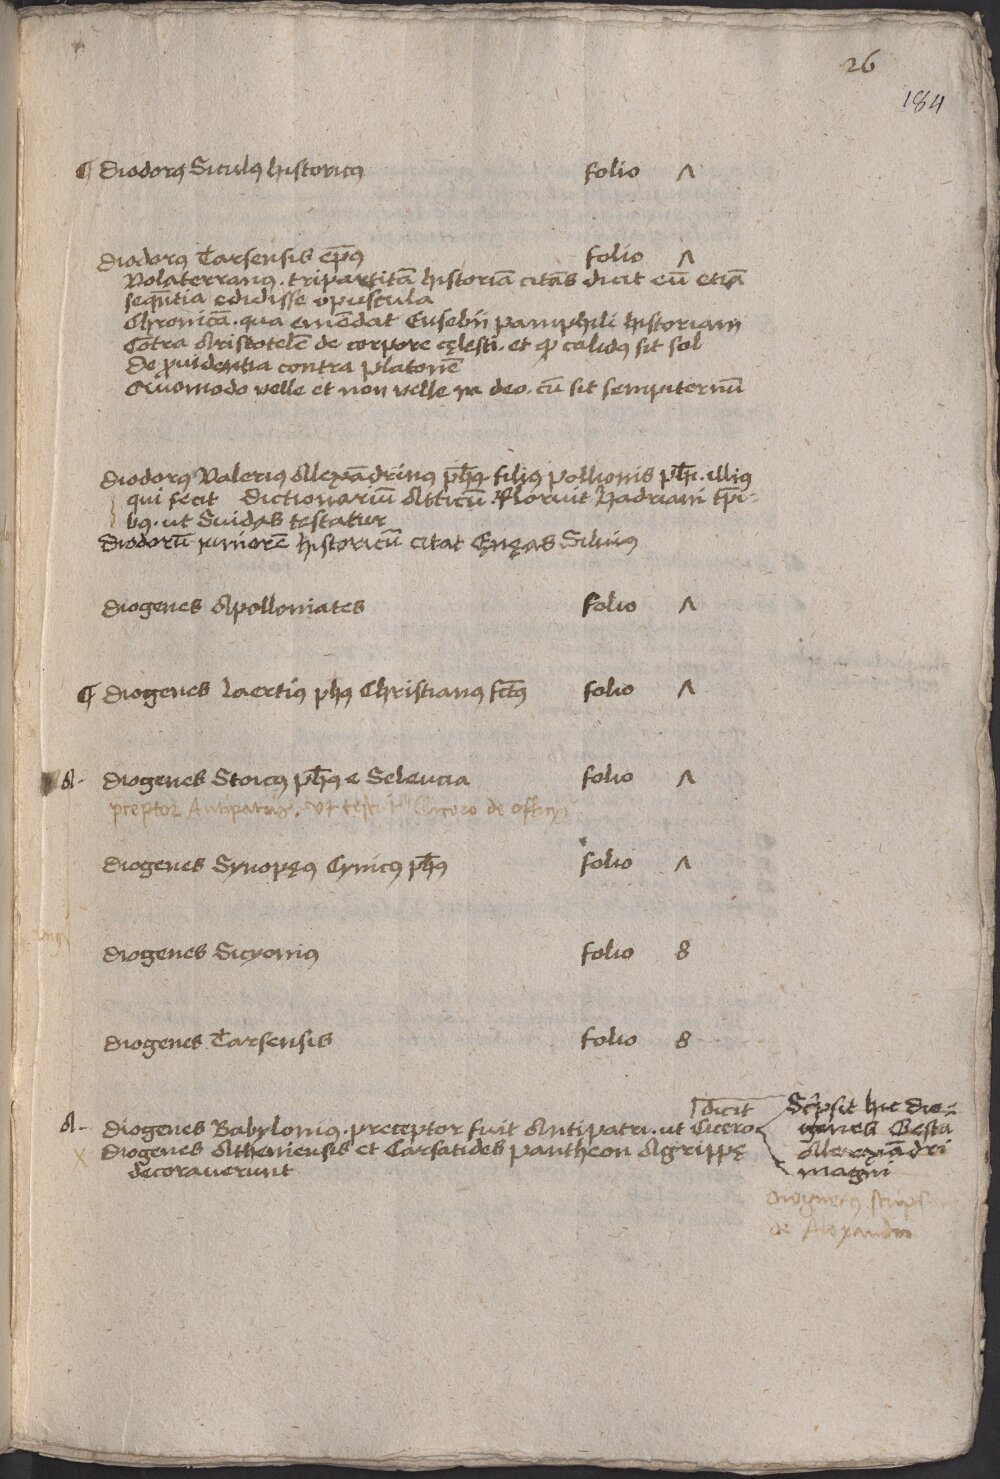 26
184
¶ Diodorꝰ Siculꝰ historicꝰ folio ʌ
Diodorꝰ Tarsensis ep̅ꝰ folio ʌ
Volaterranꝰ. tripartitā historiā citās dicit eū etiā
seqn̅tia edidisse opuscula
Chronicā. qua emēdat Eusebii pamphili historiam
Cōtra Aristotelē de corpore cęlesti. et ꝙ calidꝰ sit sol
De ꝓuidentia contra platonē
Quomodo velle et non velle in deo. cū sit sempiternū
Diodorꝰ Valeriꝰ Allexādrinꝰ ph̅ꝰ. filiꝰ pollionis ph̅i. illiꝰ
qui fecit Dictionariū Atticū. Floruit Hadriani tp̅i-
bꝰ. ut Suidas testatur
Diodorū iuniorē historicū citat Ęnęas Silvius
Diogenes Apolloniates folio ʌ
¶ Diogenes Laertiꝰ phꝰ Christianꝰ fct̅ꝰ folio ʌ
A- Diogenes Stoicꝰ ph̅ꝰ e Seleucia folio ʌ
p̅ceptor Antipatri. ut Cicero de offitiis
Diogenes Synopęꝰ Cynicꝰ ph̅ꝰ folio ʌ
Diogenes Sicyoniꝰ folio 8
Diogenes Tarsensis folio 8
A- Diogenes Babyloniꝰ. preceptor fuit Antipatri. ut Cicero dicit
Diogenes Atheniensis et Carsatides pantheon Agrippę
decoraverunt
Scripsit hic Dio-
genes Gesta
Allexādri
magni
de Alexandro